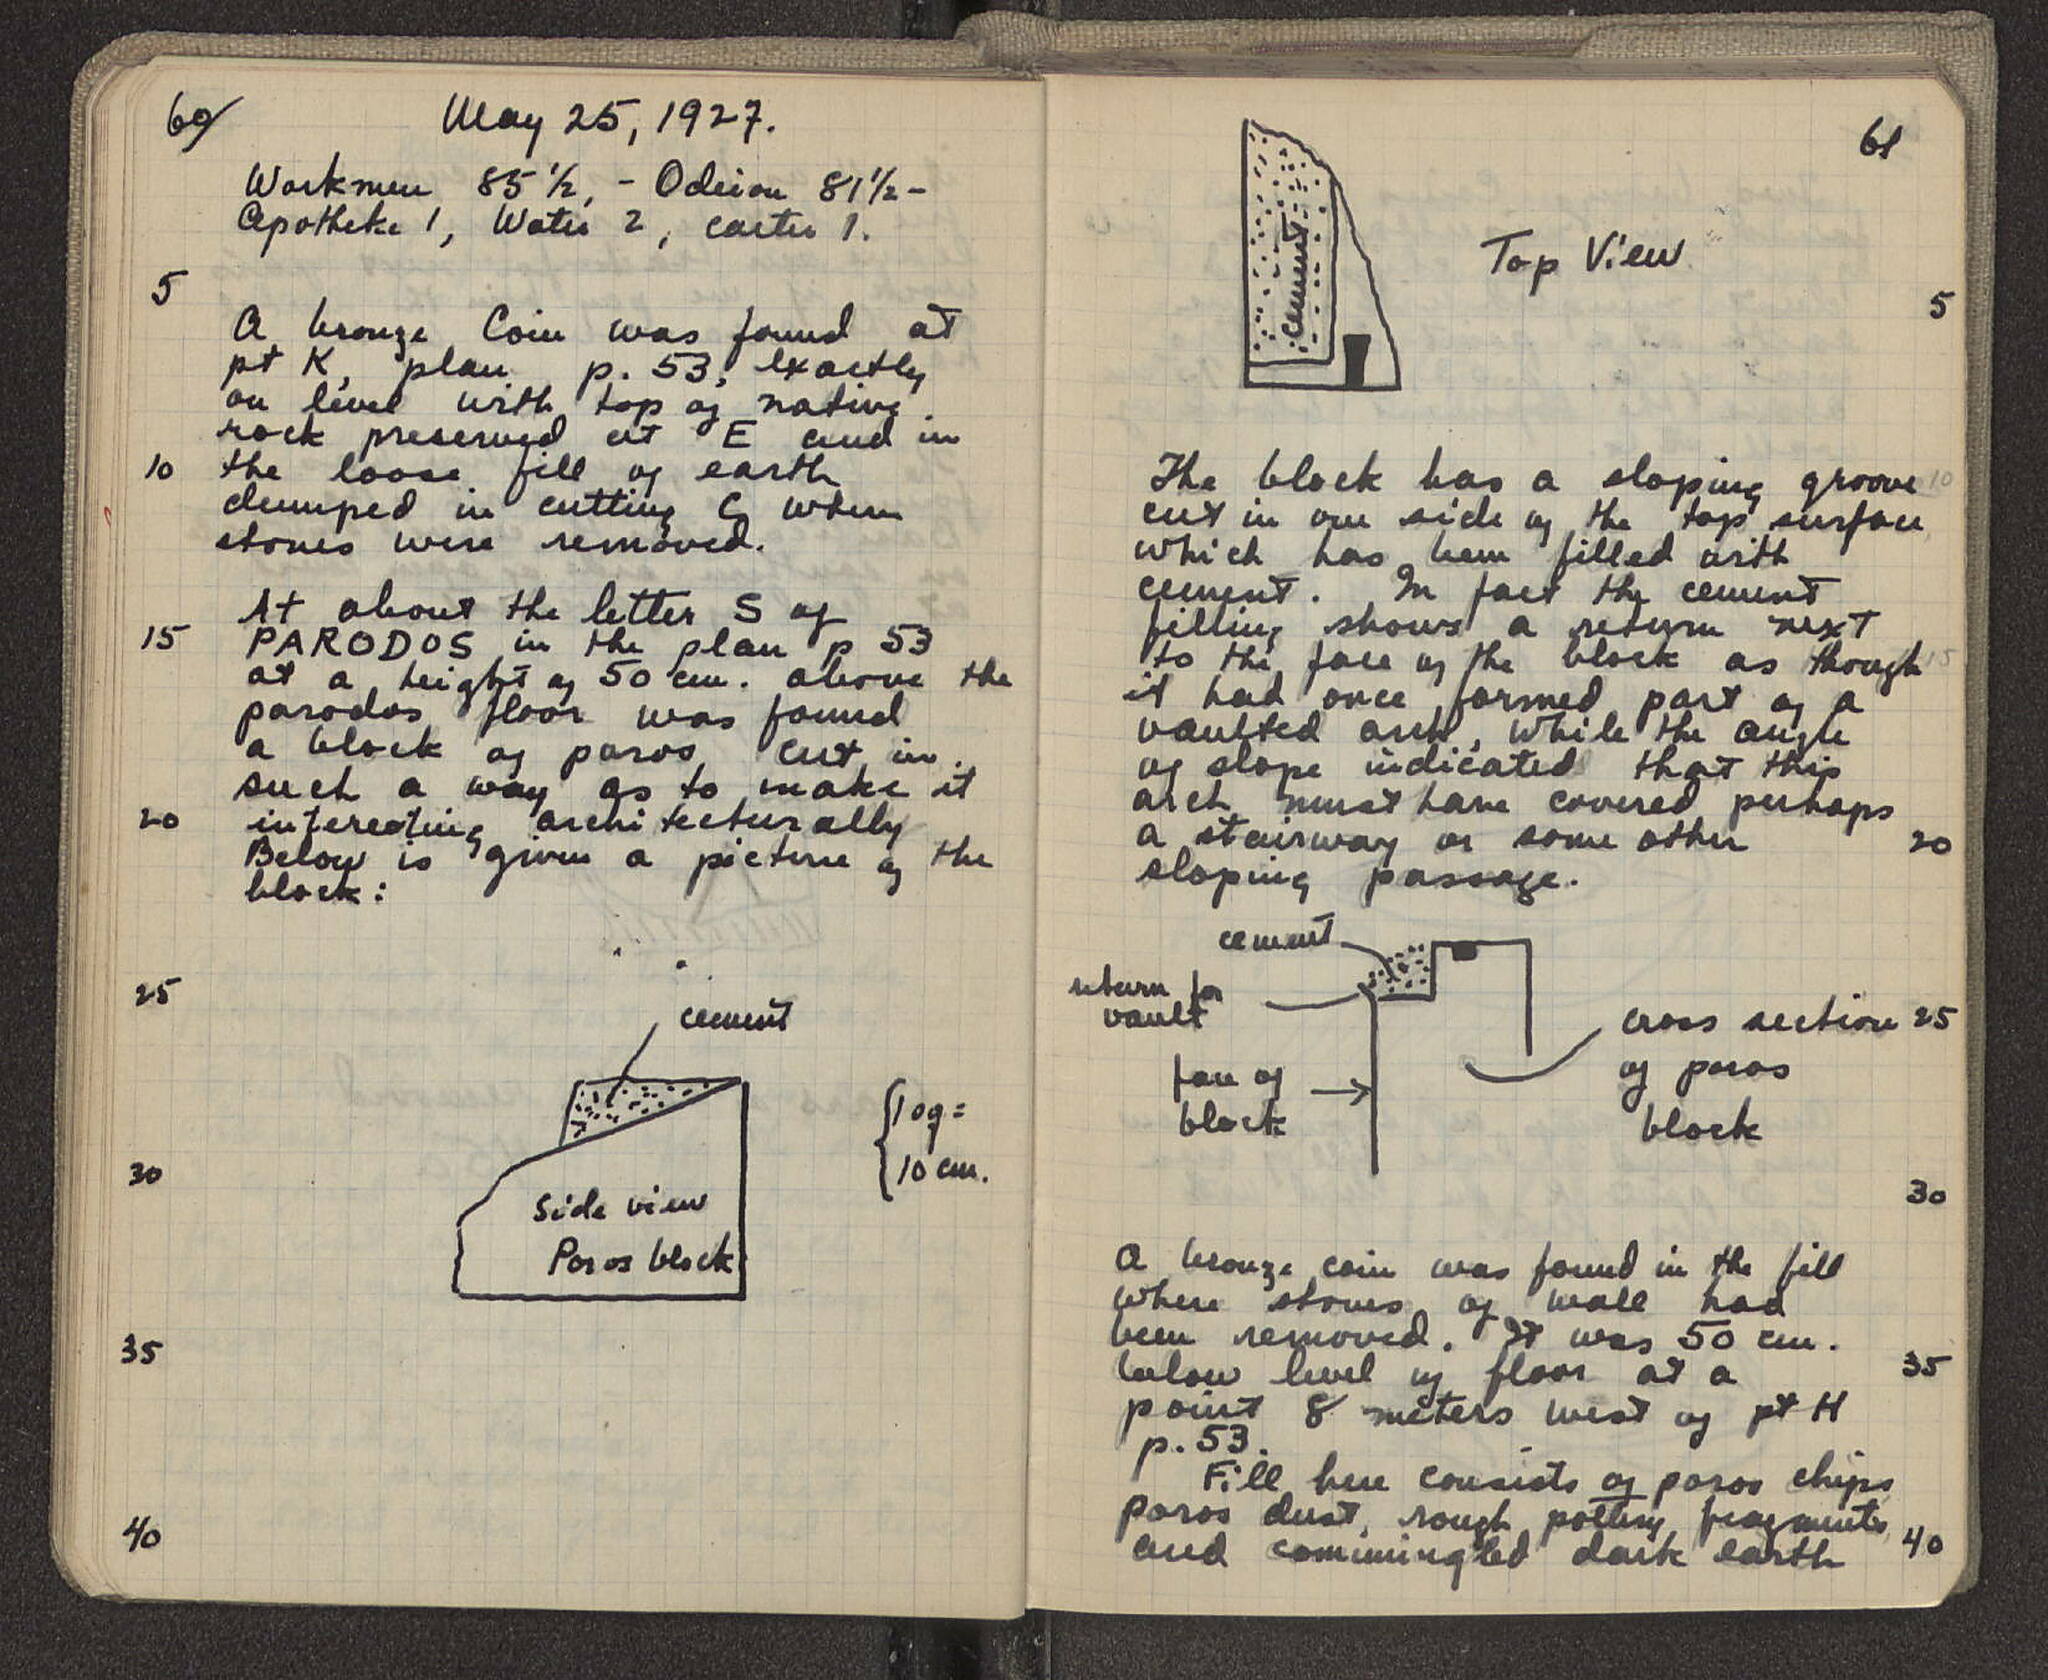 60
May 25, 1927.
Workmen 85 1/2, - Odeion 81 1/2 -
Apotheke 1, Water 2, carter 1.
5
A bronze Coin was found at
pt K, plan p. 53, exactly
on level with top of native
rock preserved at E and in
10 the loose fill of earth
dumped in cutting G when
stones were removed.
At about the letter S of
15 PARODOS in the plan p 53
at a height of 50 cm. above the
parodos floor was found
a block of poros cut in
such a way as to make it
20 interesting architecturally
Below is given a picture of the
block:
25
cement
1 sq =
10 cm.
30
Side view
Poros block
35
40
61
cement
Top View
5
The block has a sloping groove 10
cut in one side of the top surface
which has been filled with
cement. In fact the cement
filling shows a return next
to the face of the block as though 15
it had once formed part of a
vaulted arch, while the angle
of slope indicated that this
arch must have covered perhaps
a stairway or some other 20
sloping passage.
cement
return for
vault
cross section 25
of poros
block
face of
block
30
A bronze coin was found in the fill
where stones of wall had
been removed. It was 50 cm.
below level of floor at a 35
point 8 meters west of pt H
p. 53.
Fill here consists of poros chips,
poros dust, rough pottery fragments,
and commingled dark earth 40